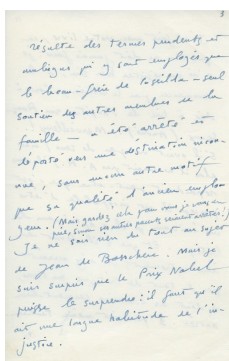 3
résulte des termes prudents et
ambigus qui y sont employés que
le beau-frère de – seul
soutien des autres membres de la
famille – a été "arrêté" et
déporté vers une destination incon-
nue, sans aucun autre motif
que sa qualité d'ancien emplo-
yeur. (Mais gardez cela pour vous, je vous
prie, sinon d'autres parents seraient arrêtés!)
Je ne sais rien du tout au sujet
de Jean de Boschère. Mais je
suis surpris que le Prix Nobel
puisse le surprendre: il faut qu'il
ait une longue habitude de l'in-
justice.